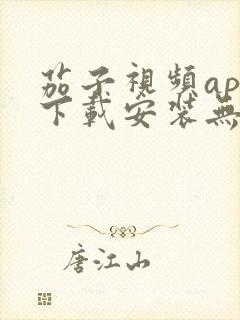 茄子視頻ap
下載安裝無
唐江山